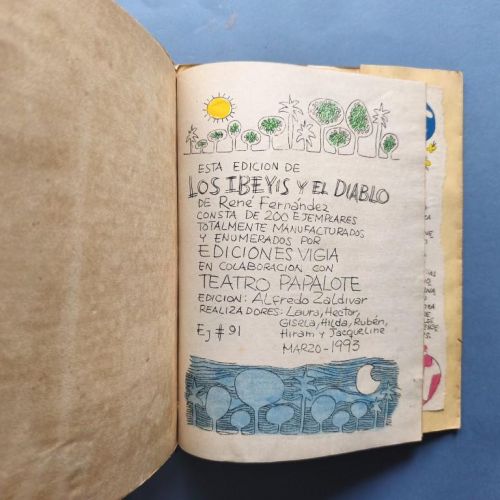 ESTA EDICION DE
LOS IBEYIS Y EL DIABLO
DE René Fernández
CONSTA DE 200 EJEMPLARES
TOTALMENTE MANUFACTURADOS
Y ENUMERADOS POR
EDICIONES VIGIA
EN COLABORACION CON
TEATRO PAPALOTE
EDICION: Alfredo Zaldivar
REALIZADORES: Laura, Hector,
Gisela, Hilda, Rubén,
Hiram y Jacqueline
Ej # 91
MARZO-1993